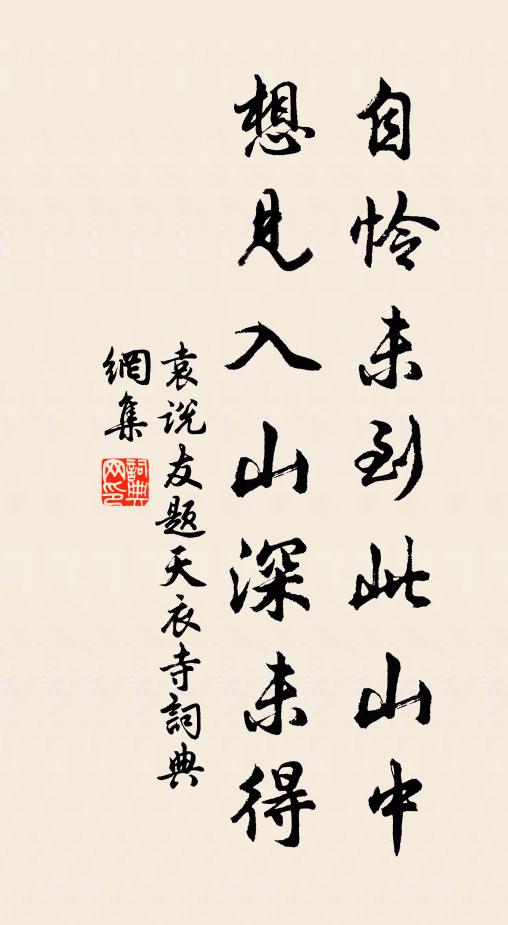 自怜未到此山中
想見入山深未得
袁说友题天衣寺詞典
網集
詞典网印